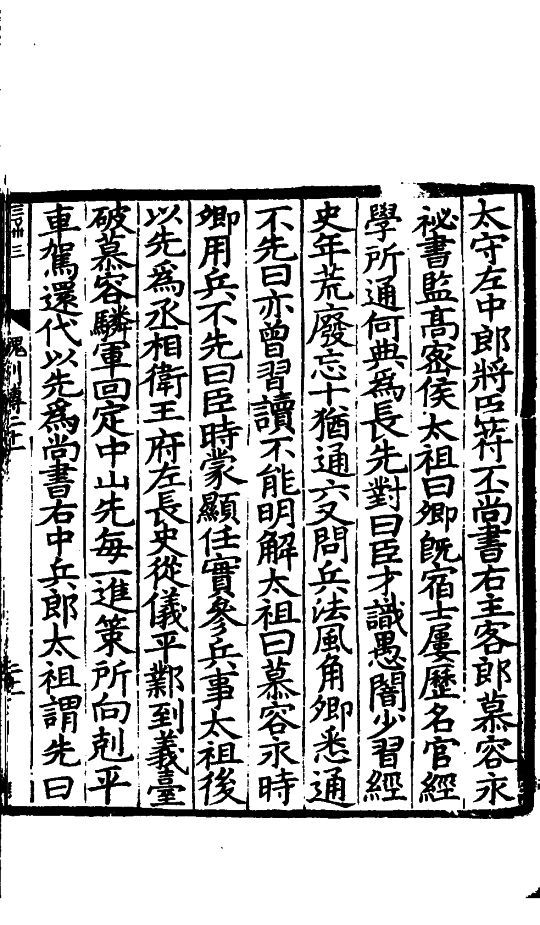 太守左中郎將苻丕尚書右主客郎慕容永
祕書監髙密侯太祖曰卿旣宿士屢歷名官經
學所通何典爲長先對曰臣才識愚闇少習經
史年荒廢忘十猶通六又問兵法風角卿悉通
不先曰亦曾習讀不能明解太祖曰慕容永時
卿用兵不先曰臣時蒙顯任實參兵事太祖後
以先爲丞相衛王府左長史從儀平鄴到義臺
破慕容驎軍回定中山先每一進策所向剋平
車駕還代以先爲尚書右中兵郎太祖謂先曰